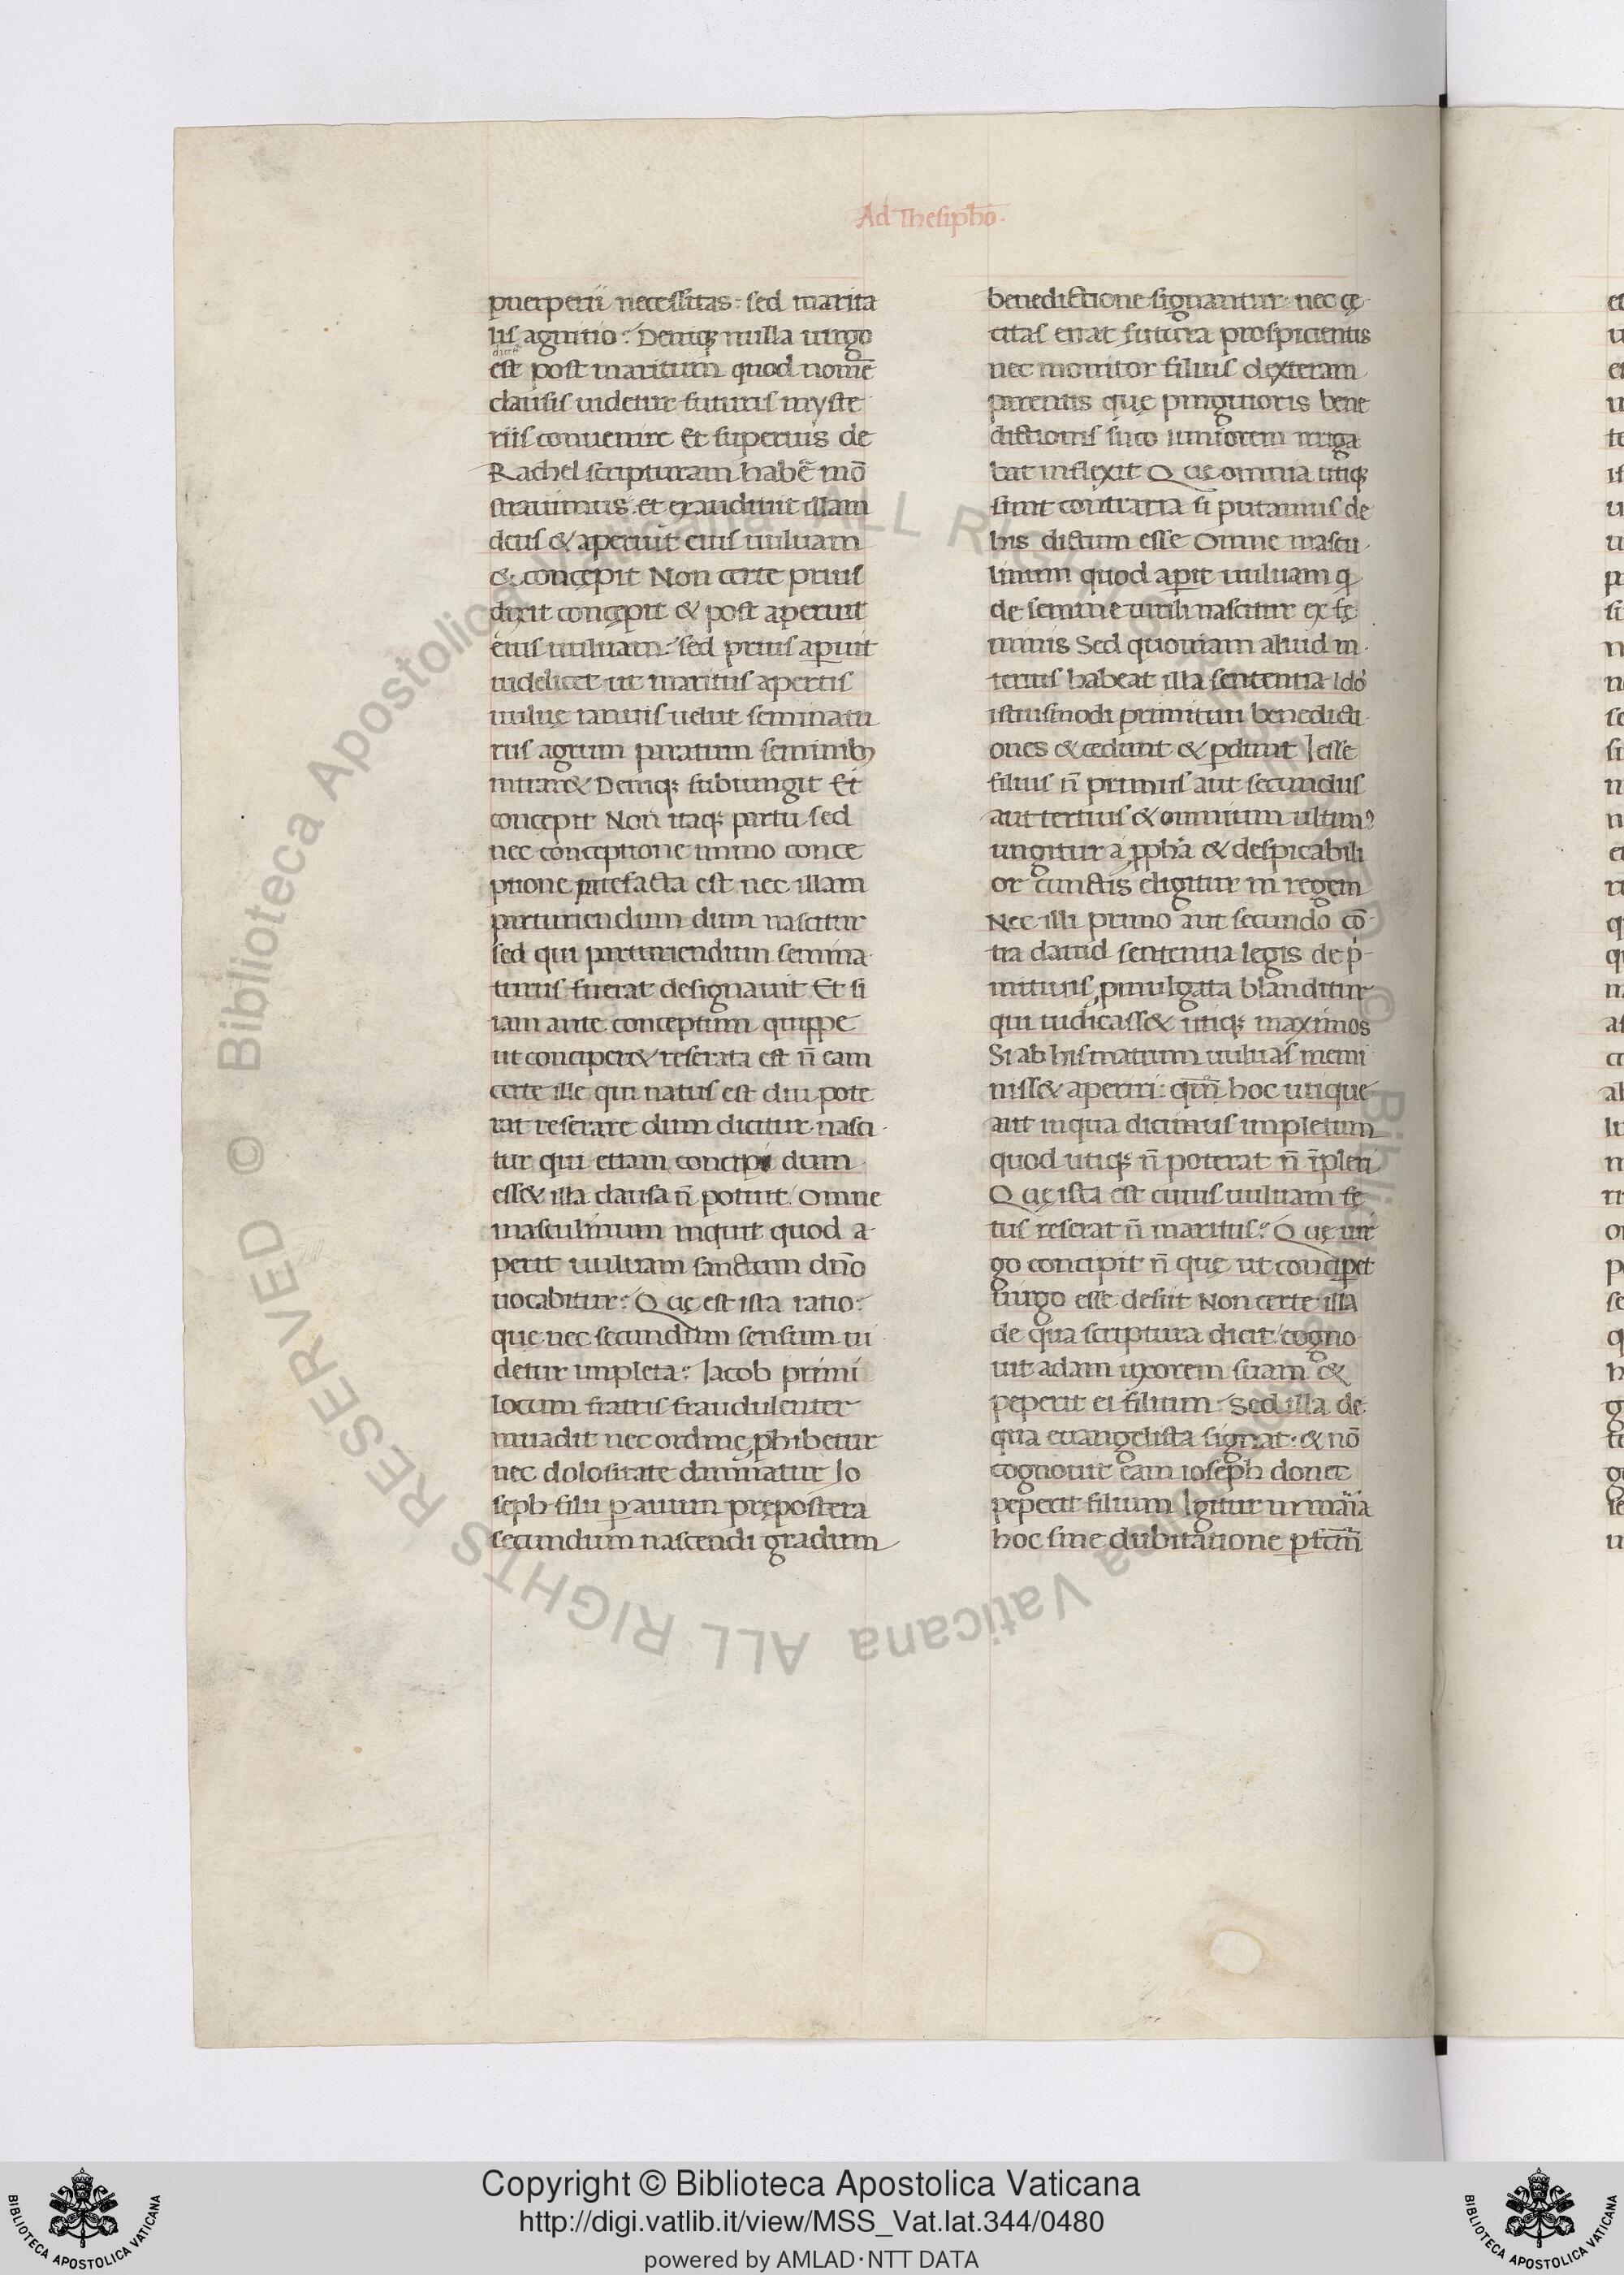 Ad Thesiphō.
puerperii necessitas: sed marita
lis agnitio. Deniq; nulla uirgo
dicta
est post maritum quod nomē
clausis uidetur futuris myste
riis conuenire Et superius de
Rachel scripturam habē mō
strauimus. et exaudiuit illam
deus & aperuit eius uuluam
& concepit Non certe prius
dixit concepit & post aperuit
eius uuluam. sed prius apuit
uidelicet ut maritus apertis
uuluę ianuis uelut seminatu
rus agrum paratum seminib;
intrar& Deniq; subiungit Et
concepit Non itaq; partu sed
nec conceptione immo conce
ptione patefacta est nec illam
parturiendum dum nascitur
sed qui parturiendum semina
turus fuerat designauit Et si
iam ante conceptum quippe
ut conciper& reserata est ñ eam
certe ille qui natus est diu pote
rat reserare dum dicitur nasci
tur qui etiam concipi dum
ess& illa clausa ñ potuit. Omne
masculinum inquit quod a
perit uuluam sanctum dño
uocabitur. Quę est ista ratio.
que nec secundum sensum ui
detur impleta. Iacob primi
locum fratris fraudulenter
inuadit nec ordine phibetur
nec dolositate damnatur Io
seph filii p auum prępostera
secundum nascendi gradum
benedictione signantur. nec cę
citas errat futura prospicientis
nec monitor filius dexteram
parentis quę pinguioris bene
dictionis suco iuniorem irriga
bat inflexit Quę omnia utiq;
sunt contraria si putamus de
his dictum esse Omne mascu
linum quod apit uuluam q
de semine uirili nascitur ex fę
minis Sed quoniam aliud in
terius habeat illa sententia Idō
istiusmodi primitiui benedicti
ones & cedunt & pdunt | esse
filius ñ primus aut secundus
aut tertius & omnium ultim9
ungitur a ppha & despicabili
or cunctis eligitur in regem
Nec illi primo aut secundo cō
tra dauid sententia legis de p
mitiuis pmulgata blanditur
qui iudicass& utiq; maximos
Si ab his matrum uuluas memi
niss& aperiri: qm̄ hoc utique
aut in qua dicimus impletum
quod utiq; ñ poterat ñ īpleri
Quę ista est cuius uuluam fę
tus reserat ñ maritus. Quę uir
go concipit ñ quę ut concipet
uirgo esse desiit Non certe illa
de qua scriptura dicit. cogno
uit adam uxorem suam &
peperit ei filium. Sed illa de
qua euangelista signat. & nō
cognouit eam ioseph donec
peperit filium Igitur in maria
hoc sine dubitatione pfcm̄
© Biblioteca Apostolica Vaticana ALL RIGHTS RESERVED
© Biblioteca Apostolica Vaticana ALL RIGHTS RESERVED
Copyright © Biblioteca Apostolica Vaticana
http://digi.vatlib.it/view/MSS_Vat.lat.344/0480
powered by AMLAD·NTT DATA
BIBLIOTECA APOSTOLICA VATICANA
BIBLIOTECA APOSTOLICA VATICANA